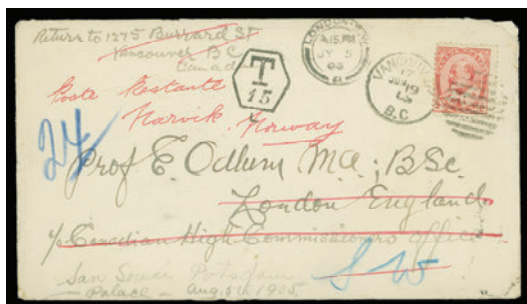 Return to 1275 Burrard St
Vancouver B.C.
Canada
Poste Restante
Narvik. Norway
T
15
LONDON
4.15 PM
JY 5
05
VANCOUVER
17
JUN 19
B.C
24
Prof E. Odlum. Ma.; BSc.
London England
c/o Canadian High Commissioners office
S W
San Souci Potsdam
Palace - Aug. 5th 1905